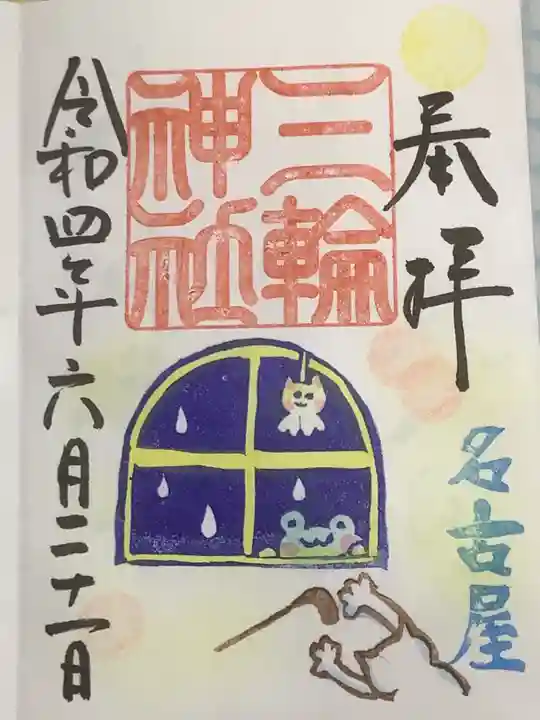 奉拝
名古屋
三輪
神社
令和四年六月二十一日